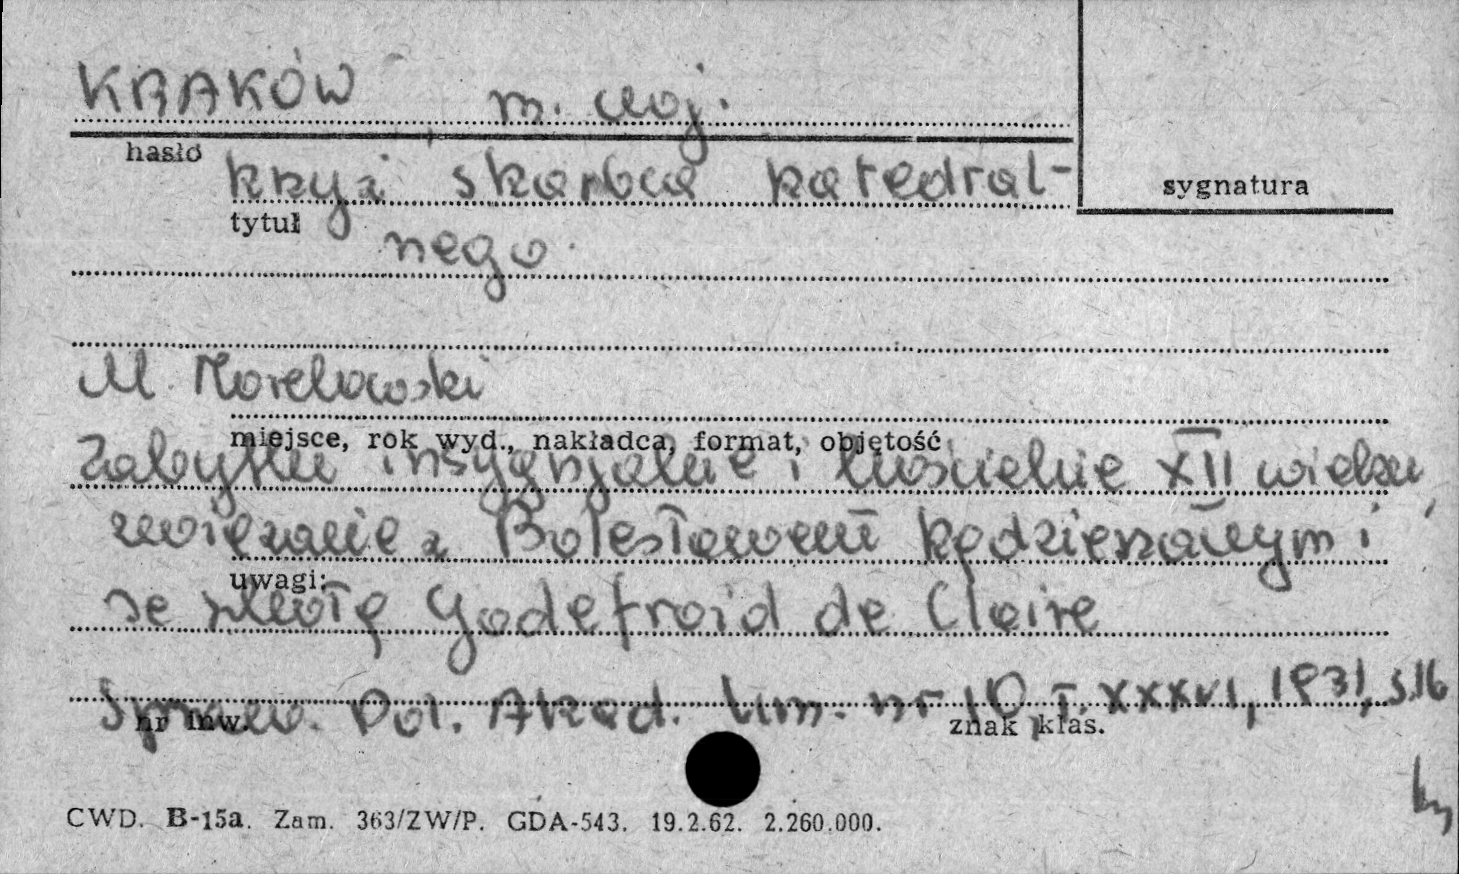 KRAKÓW m. woj.
hasło
krzyż skarbca katedral-
sygnatura
tytuł
nego
M. Morelowski
miejsce, rok wyd., nakładca, format, objętość
Zabytki insygnjalne i kościelne XII wieku
związane z Bolesławem Kędzierzawym i
uwagi:
se szkołą Godefroid de Claire
Spraw. Pol. Akad. Um. nr 10 T. XXXVI, 1931, s.16
nr inw.
znak klas.
CWD. B-15a. Zam. 363/ZW/P. GDA-543. 19.2.62. 2.260.000.